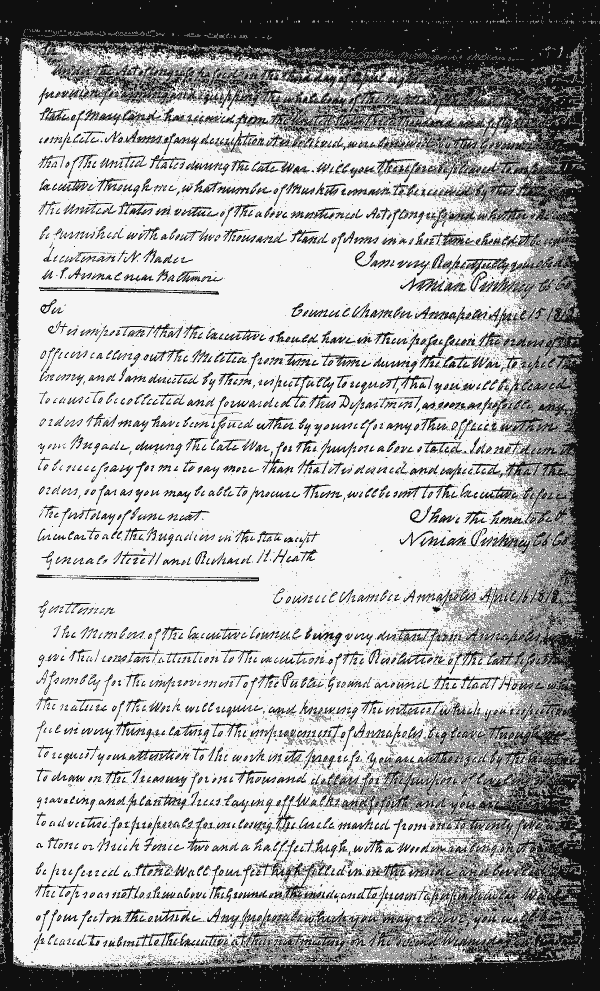 Sir
Under the Act of Congress passed on the third day of
provision for arming and equipping the whole body of the
State of Maryland has received from the United States
complete. No Arms of any description it is believed, were
that of the United States during the late War. Will you therefore be pleased to
Executive through me, what number of Muskets remain to be received by this State
the United States in virtue of the above mentioned Act of Congress and whether
be furnished with about two thousand Stand of Arms in a short time should it be
I am very Respectfully your
Lieutenant N. Bader
Ninian Pinkney Cl Co
U. S. Arsenal near Baltimore
Council Chamber Annapolis April 15 18
Sir
It is important that the Executive should have in their possession the orders of the
officers calling out the Militia from time to time during the late War, to repel the
Enemy, and I am directed by them, respectfully to request, that you will be pleased
to cause to be collected and forwarded to this Department, as soon as possible, any
orders that may have been issued either by yourself or any other Officer within
your Brigade, during the late War, for the purpose above stated. I do not deem it
to be necessary for me to say more than that it is desired and expected, that the
orders, so far as you may be able to procure them, will be sent to the Executive before
the first day of June next.
I have the honor to be &
Circular to all the Brigadiers in the State except
Ninian Pinkney Cl Co
Generals and Richard H. Heath
Council Chamber Annapolis April 16 18
Gentlemen
The Members of the Executive Council being very distant from Annapolis
give that constant attention to the execution of the Resolution of the last
Assembly for the improvement of the Public Ground around the Stadt House
the nature of the Work will require, and knowing the interest which you
feel in every thing relating to the improvement of Annapolis, beg leave through me
to request your attention to the work in its progress. You are authorized by the
to draw on the Treasury for one thousand dollars for the purpose of
graveling and planting Trees laying off Walks and so forth, and you are
to advertise for proposals for inclosing the Circle marked from one to twenty
a Stone or Brick Fence two and a half feet high, with a Wooden railing on it
be preferred a Stone Wall four feet high filled in on the inside and
the top so as not to shew above the Ground on the inside and to present a perpendicular Wall
of four feet on the outside. Any proposals which you may receive, you will be
pleased to submit to the Executive at their next meeting on the second Wednesday